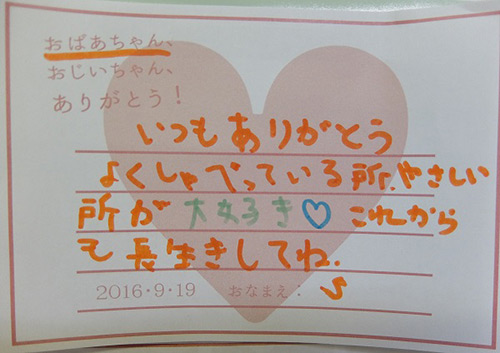 おばあちゃん、
おじいちゃん、
ありがとう！
いつもありがとう
よくしゃべっている所、やさしい
所が 大好き♡ これから
も 長生きしてね.
2016・9・19 おなまえ： S